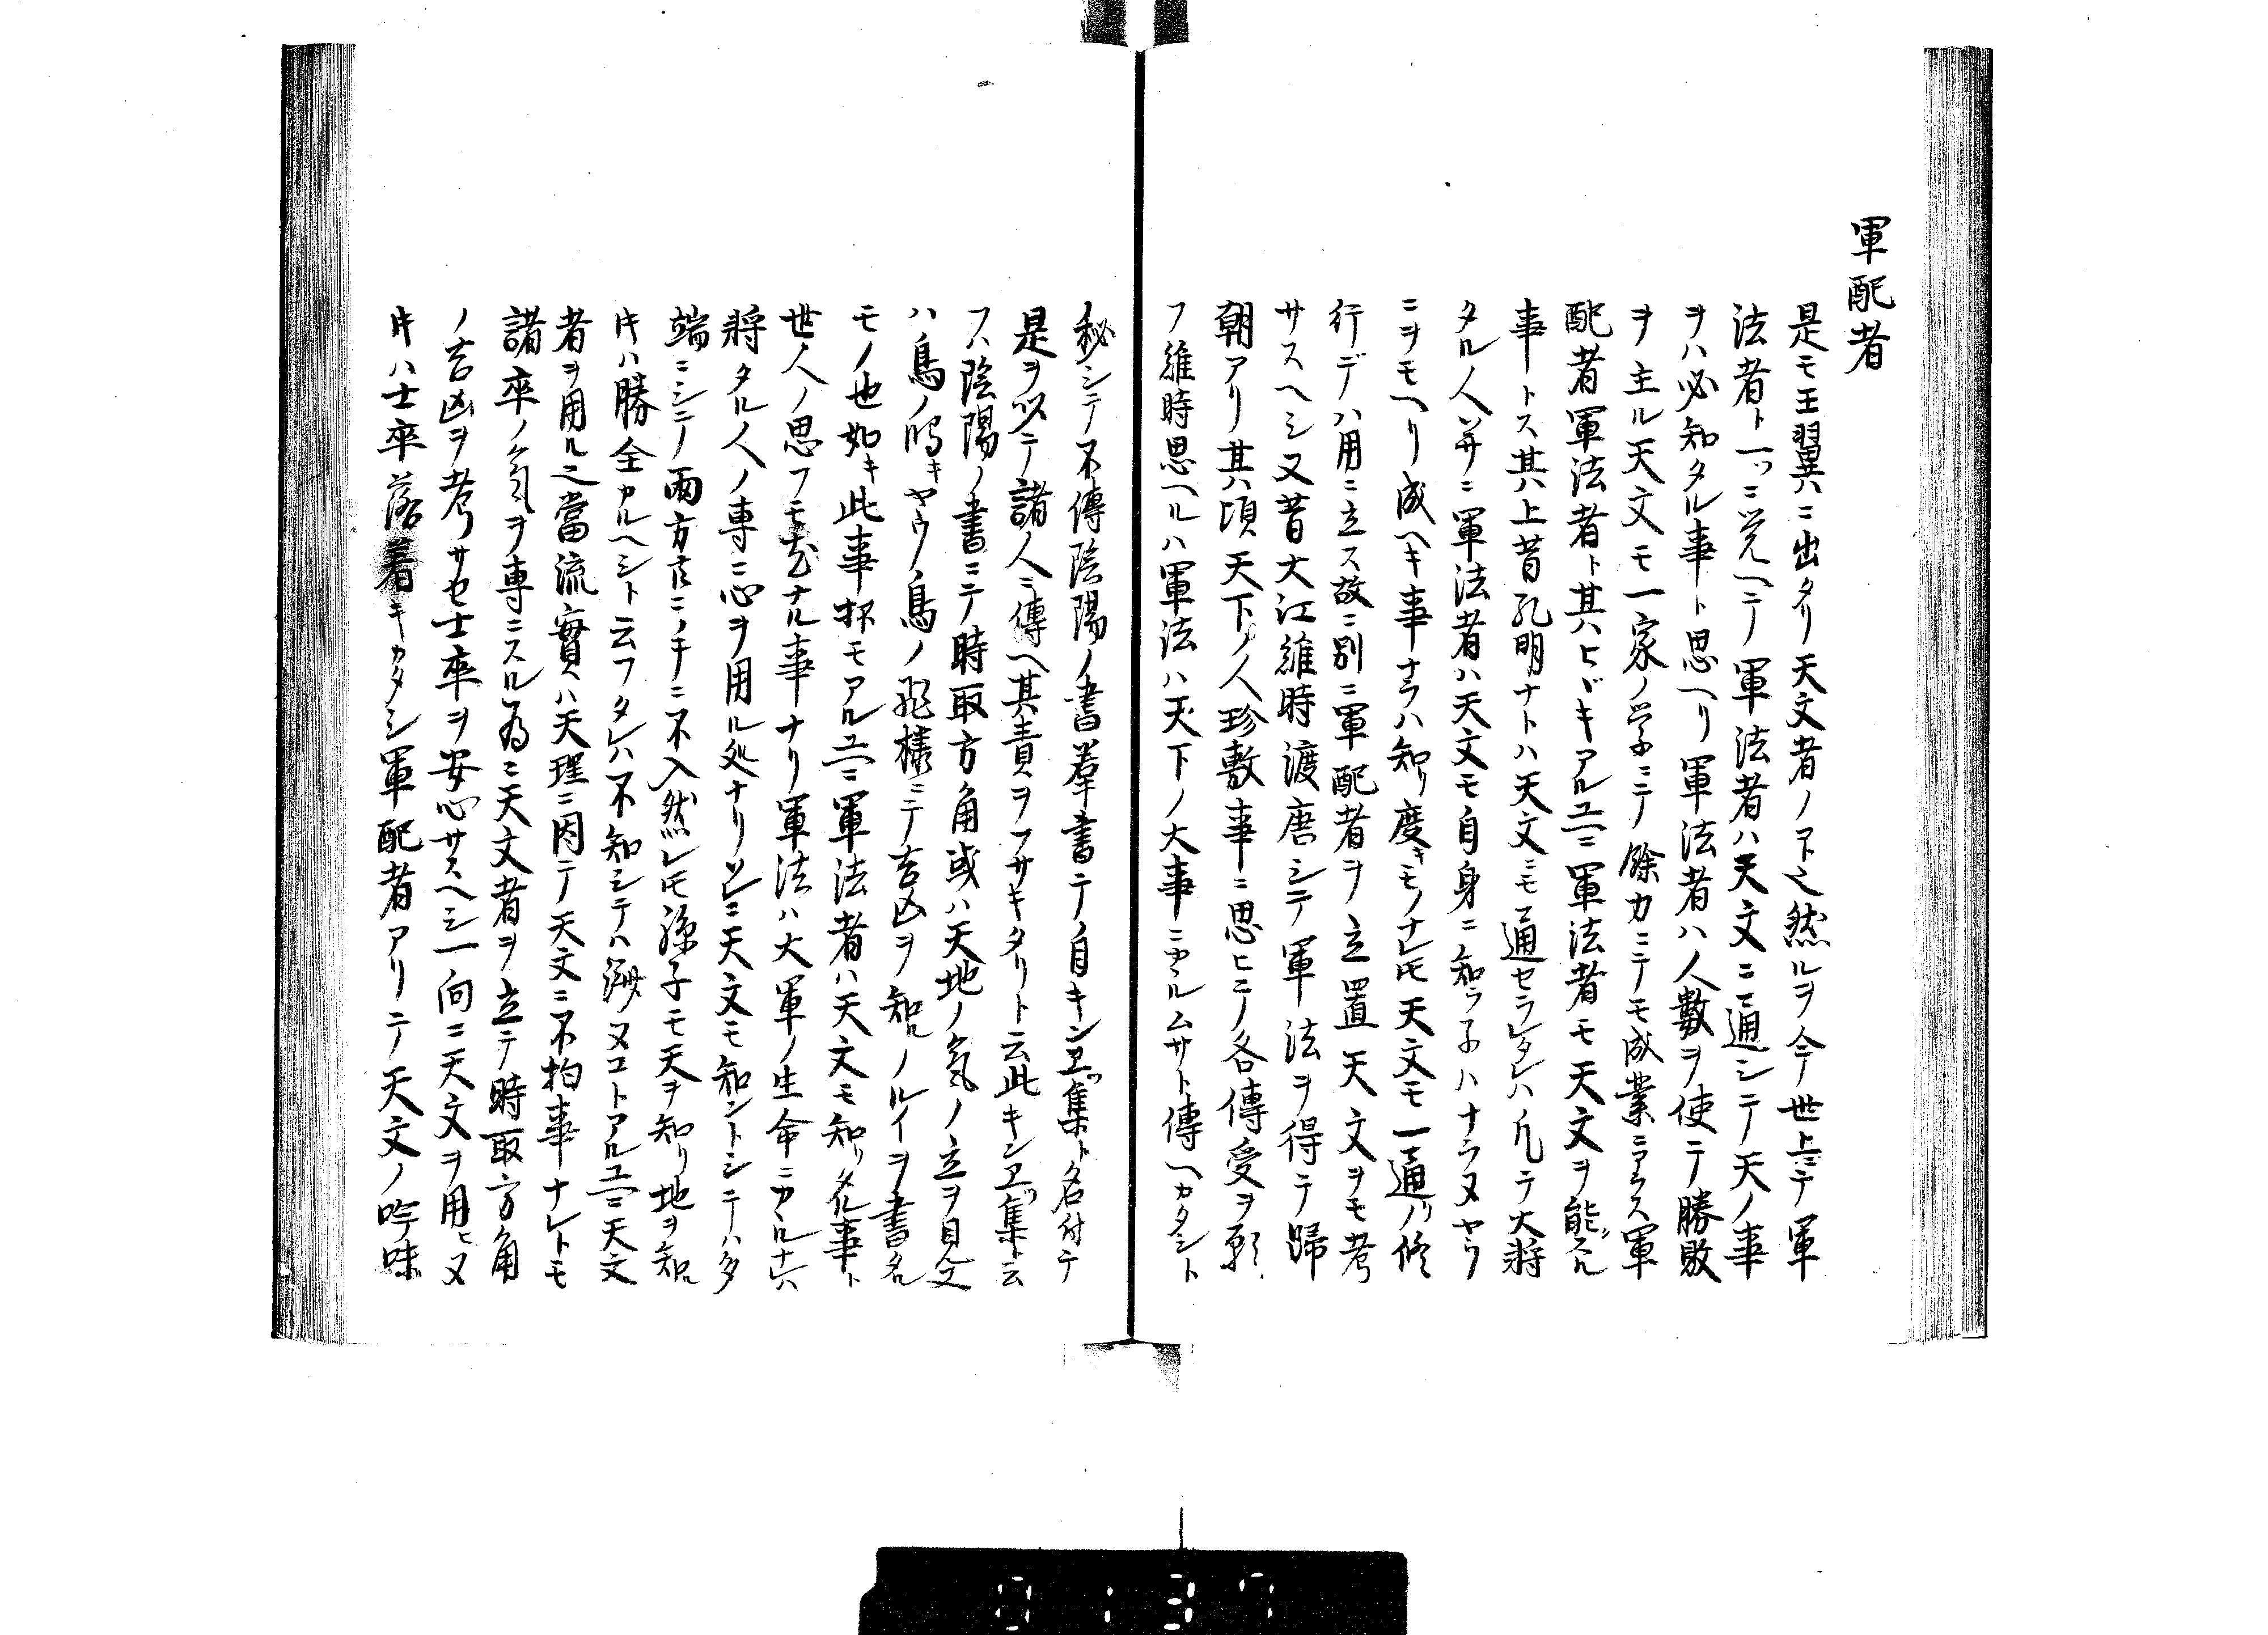 軍配者
是モ王翼ニ出タリ天文者ノヿ也然ルヲ今世上ニテ軍
法者ト一ツニ覚ヘテ軍法者ハ天文ニ通シテ天ノ事
ヲハ必知タル事ト思ヘリ軍法者ハ人數ヲ使テ勝敗
ヲ主ル天文モ一家ノ学ニテ餘力ニテモ成業ニアラス軍
配者軍法者ト其ハヒヾキアルユヘニ軍法者モ天文ヲ能スル
事トス其上昔孔明ナトハ天文ニモ通セラレタレハ凡テ大將
タル人并ニ軍法者ハ天文モ自身ニ知ラ子ハナラヌヤウ
ニヲモヘリ成ヘキ事ナラハ知リ度キモノナレ𪜈天文モ一通ノ修
行デハ用ニ立ス故ニ別ニ軍配者ヲ立置天文ヲモ考
サスヘシ又昔大江維時渡唐シテ軍法ヲ得テ歸
朝アリ其頃天下ノ人珍敷事ニ思ヒテ各傳受ヲ願
フ維時思ヘルハ軍法ハ天下ノ大事ニカヽルムサト傳ヘカタシト
秘シテ不傳陰陽ノ書羣書テノ自キンヱツ集ト名付テ
是ヲ以テ諸人ニ傳ヘ其責ヲフサキタリト云此キンヱツ集ト云
フハ陰陽ノ書ニテ時取方角或ハ天地ノ氣ノ立ヲ見又
ハ鳥ノ鳴キヤウノ鳥ノ飛樣ニテ吉凶ヲ知ルノルイヲ書タル
モノ也如キ此事抔モアルユヘニ軍法者ハ天文モ知リタル事ト
世人ノ思フモ尤ナル事ナリ軍法ハ大軍ノ生命ニカヽルナレハ
將タル人ノ専ニ心ヲ用ル処ナリソレニ天文モ知ントシテハ多
端ニシテ兩方𪜈ニ手ニ不入然レ𪜈孫子モ天ヲ知リ地ヲ知ル
𪜈ハ勝全カルヘシト云フタレハ不知シテハ濟ヌコトアルユヘニ天文
者ヲ用ル也當流實ハ天理ニ因テ天文ニ不拘事ナレトモ
諸卒ノ氣ヲ専ニスル為ニ天文者ヲ立テ時取方角
ノ吉凶ヲ考サセ士卒ヲ安心サスヘシ一向ニ天文ヲ用ヒヌ
𪜈ハ士卒落着キカタシ軍配者アリテ天文ノ吟味